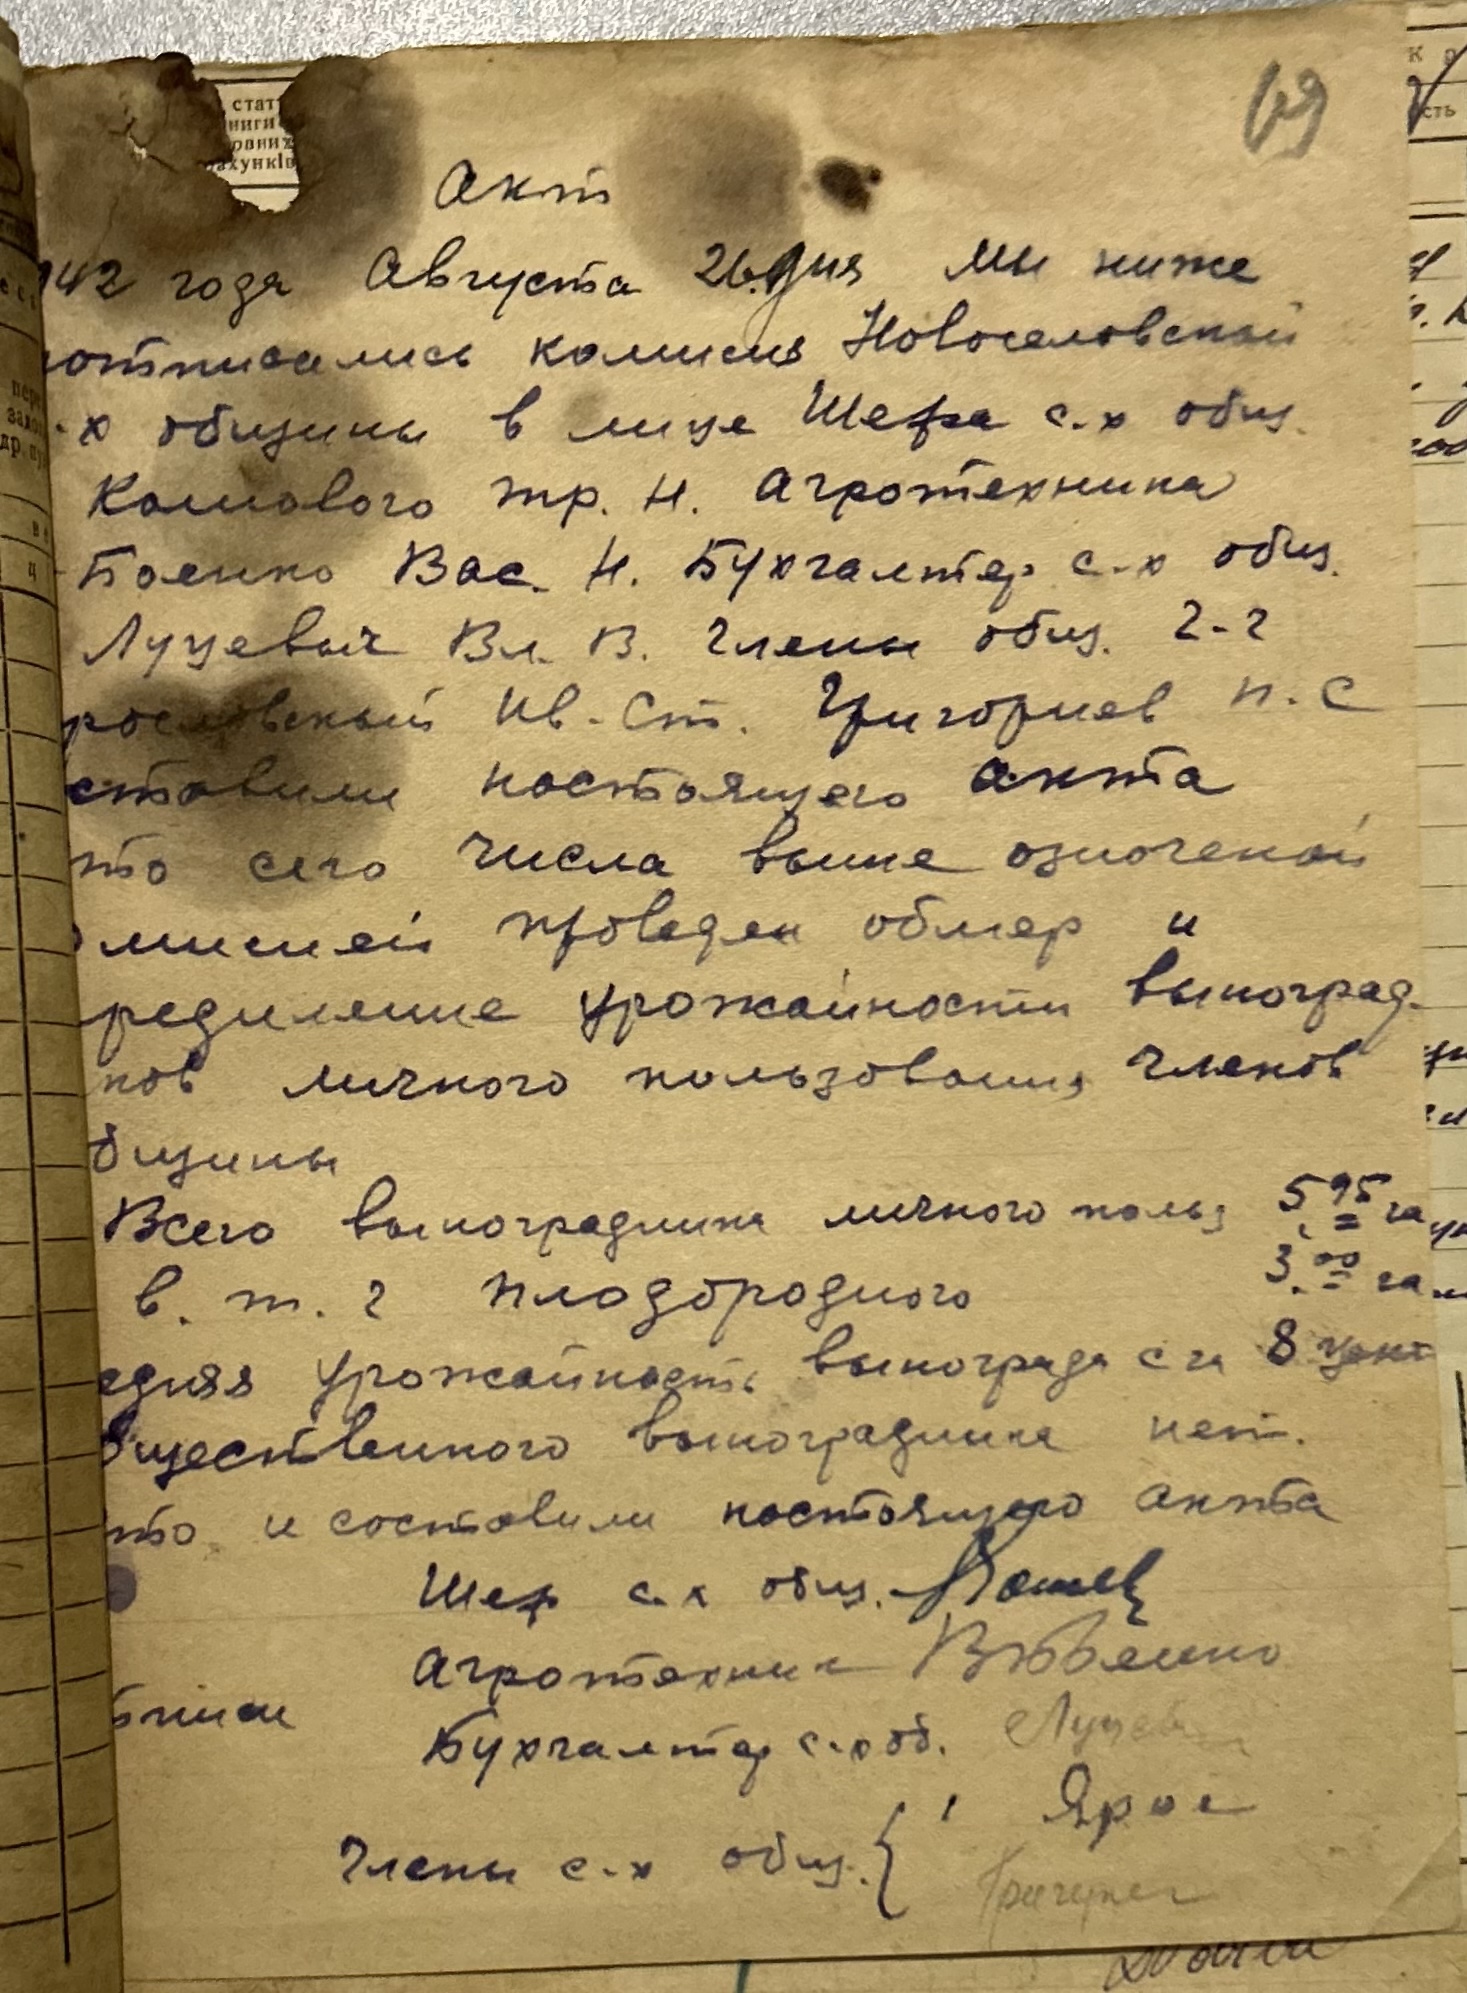 69
стат
ниги
овних
ахунків
Акт
942 года Августа 26 дня Мы ниже
потписались комисия Новоселовской
-х общины в лице Шефа с-х общ.
тр. Н. Агротехника
Боенко Вас. Н. Бухгалтер с-х общ.
Луцевыч Вл. В. Члены общ. г-г
рославский Ив. Ст. Григориев П. С
ставили настоящего акта
то сего числа выше озноченой
омисией проведен обмер и
ределение урожайности выноград-
ков личного пользования членов
бщины
Всего выноградника личного польз 5.95 га
в. т. ч плодородного 3.00 га
едняя урожайность вынограда с га 8 цент
бщественного выноградника нет.
то и составили настоящего акта
Шеф с-х общ.
Агротехник
Бухгалтер с-х об. Луцев
Члены с-х общ. { Ярос